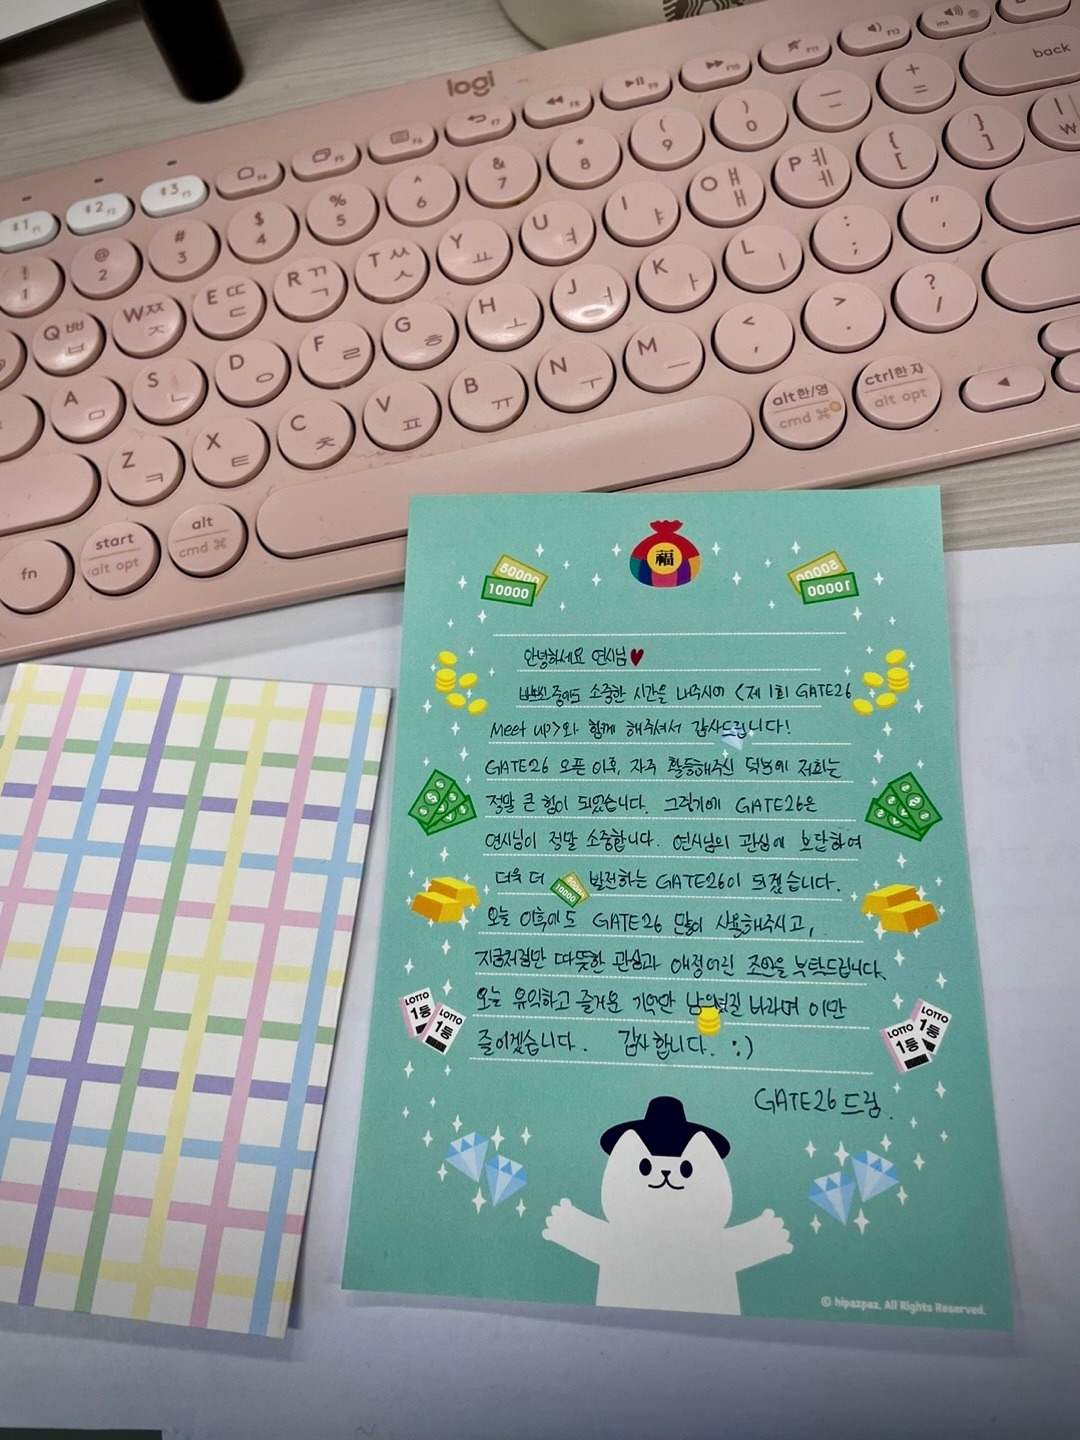 logi
F4
F5
F6
F7
F8
F9
F10
F11
F12
Ins
1 F1
2 F2
3 F3
! 1
@ 2
# 3
$ 4
% 5
^ 6
& 7
* 8
( 9
) 0
— –
+ =
back
Q ㅃ ㅂ
W ㅉ ㅈ
E ㄸ ㄷ
R ㄲ ㄱ
T ㅆ ㅅ
Y ㅛ
U ㅕ
I ㅑ
O ㅒ ㅐ
P ㅖ ㅔ
{ [
} ]
| \ ₩
A ㅁ
S ㄴ
D ㅇ
F ㄹ
G ㅎ
H ㅗ
J ㅓ
K ㅏ
L ㅣ
: ;
" '
Z ㅋ
X ㅌ
C ㅊ
V ㅍ
B ㅠ
N ㅜ
M ㅡ
< ,
> .
? /
fn
start alt opt
alt cmd ⌘
alt 한/영 cmd ⌘
ctrl 한자 alt opt
福
50000
10000
50000
10000
안녕하세요 연시님♥
바쁘신 중에도 소중한 시간을 내주시어 <제 1회 GATE26
Meet up>와 함께 해주셔서 감사드립니다!
GATE26 오픈 이후, 자주 활동해주신 덕분에 저희는
정말 큰 힘이 되었습니다. 그렇기에 GATE26은
연시님이 정말 소중합니다. 연시님의 관심에 보답하여
더욱 더 발전하는 GATE26이 되겠습니다.
50000
10000
오늘 이후에도 GATE26 많이 사용해주시고,
지금처럼만 따뜻한 관심과 애정어린 조언을 부탁드립니다.
오늘 유익하고 즐거운 기억만 남으셨길 바라며 이만
줄이겠습니다. 감사합니다. :)
GATE26 드림.
LOTTO 1등
LOTTO 1등
LOTTO 1등
LOTTO 1등
© hipazpaz. All Rights Reserved.